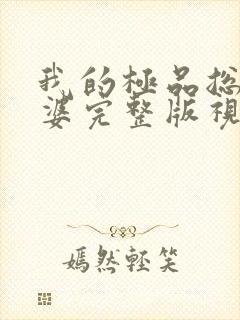 我的極品總
婆完整版視
嫣然輕笑